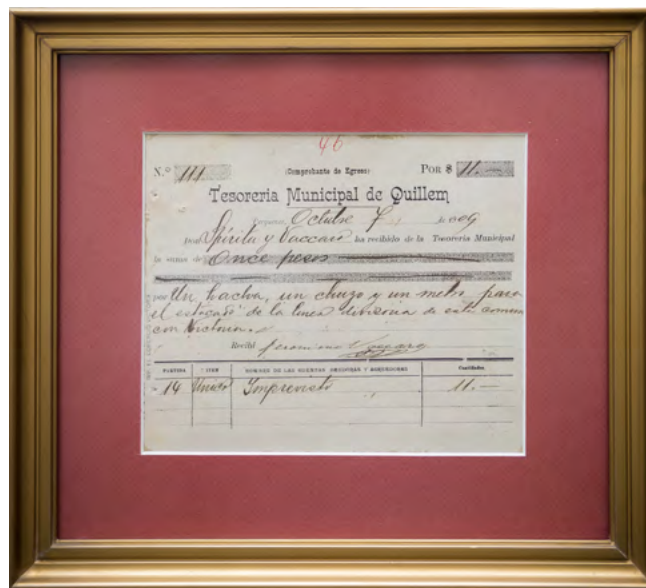 46
N.º 111 (Comprobante de Egreso) POR $ 11.—
Tesoreria Municipal de Quillem
Octubre 7 de 1909
Spirito y Vaccaro ha recibido de la Tesoreria Municipal
la suma de Once pesos
por Un hacha, un chuzo y un metro para
el estacado de la linea divisoria de esta comuna
con Victoria.
Recibí Jeronimo Vaccaro
PARTIDA ITEM NOMBRE DE LAS CUENTAS DEUDORAS Y ACREEDORAS Cantidades
14 Unico Imprevisto 11.—